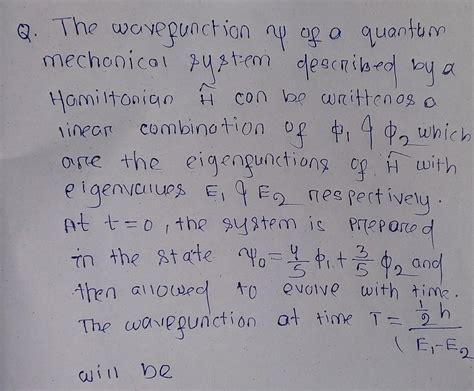 Q. The wavefunction ψ of a quantum
mechanical system described by a
Hamiltonian Ĥ can be written as a
linear combination of ϕ₁ & ϕ₂ which
are the eigenfunctions of Ĥ with
eigenvalues E₁ & E₂ respectively.
At t=0, the system is prepared
in the state ψ₀ = 4/5 ϕ₁ + 3/5 ϕ₂ and
then allowed to evolve with time.
The wavefunction at time T = ½h / (E₁-E₂
will be